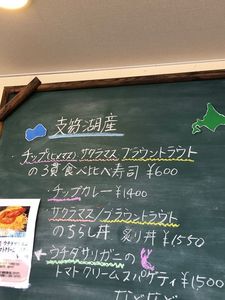 支笏湖産
・チップ(ヒメマス) サクラマス ブラウントラウト
の3貫食べ比べ寿司 ¥600
・チップカレー ¥1400
・サクラマス/ブラウントラウト
のちらし丼 炙り丼 ¥1550
・ウチダザリガニの
トマトクリームスパゲティ ¥1500
などなど